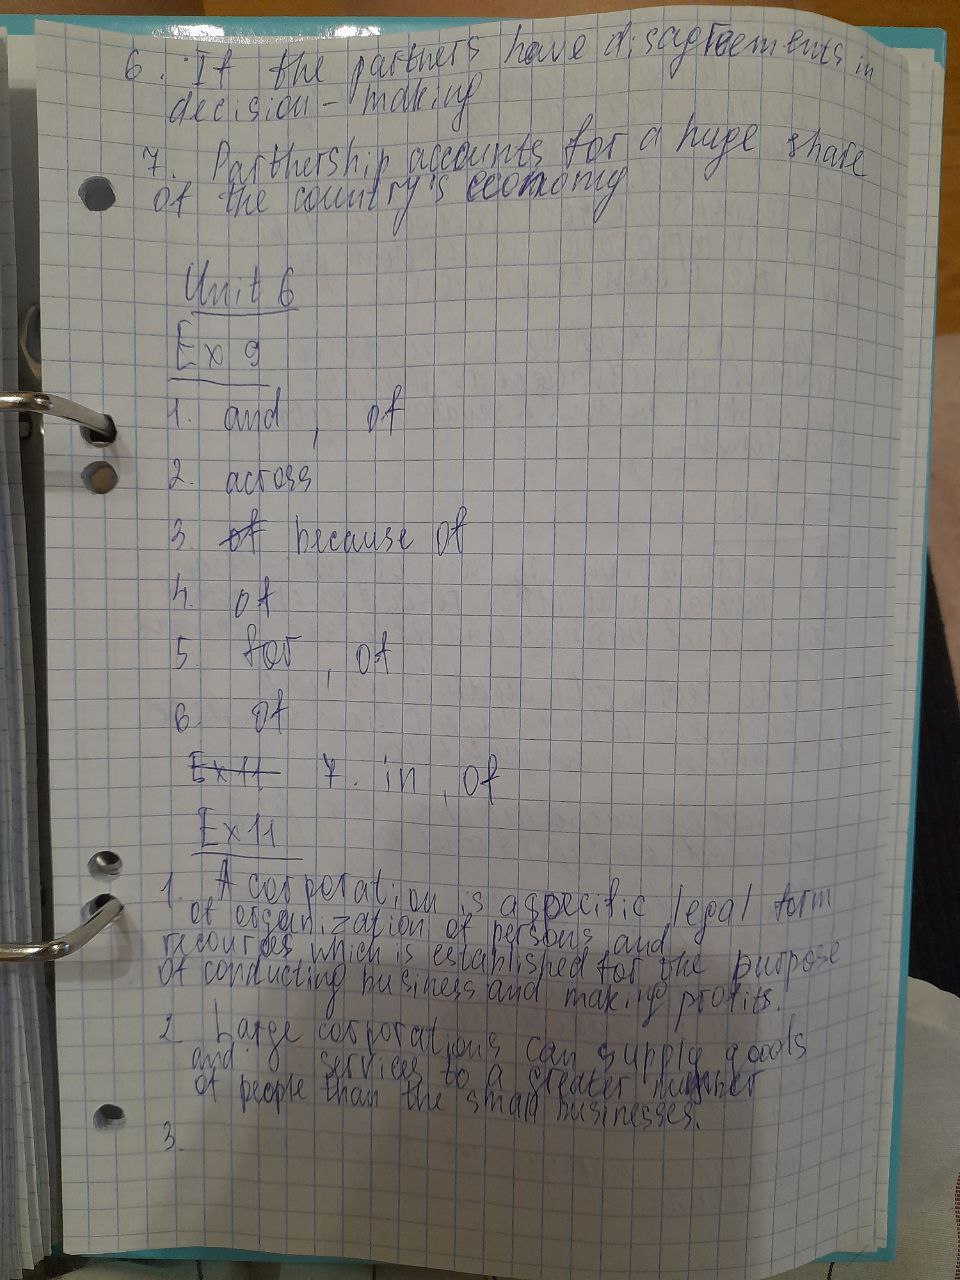 6. If the partners have disagreements in
decision - making
7. Parthership accounts for a huge share
of the country's economy
Unit 6
Ex 9
1. and , of
2. across
3. of because of
4. of
5 for , of
6 of
Ex 11 7. in , of
Ex 11
1. A corporation is a specific legal form
of organization of persons and
recources which is established for the purpose
of conducting business and making profits.
2 Large corporations can supply goods
and services to a greater number
of people than the small businesses.
3.